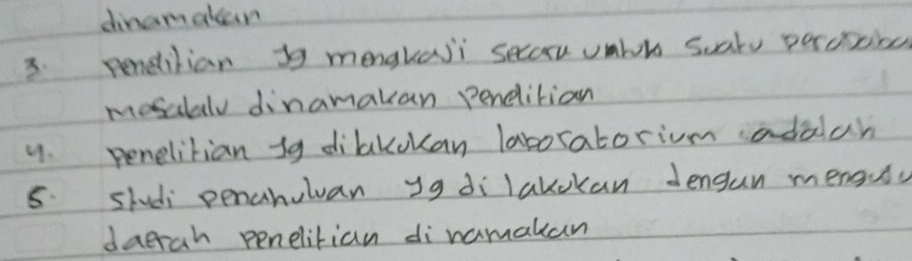 dinamakan
3. penelitian yg mengkaji secara umum suatu
masalalu dinamakan penelitian
4. penelitian yg dilakukan laboratorium adalah
5. studi penahuluan yg di lakukan dengan
daerah penelitian di namakan